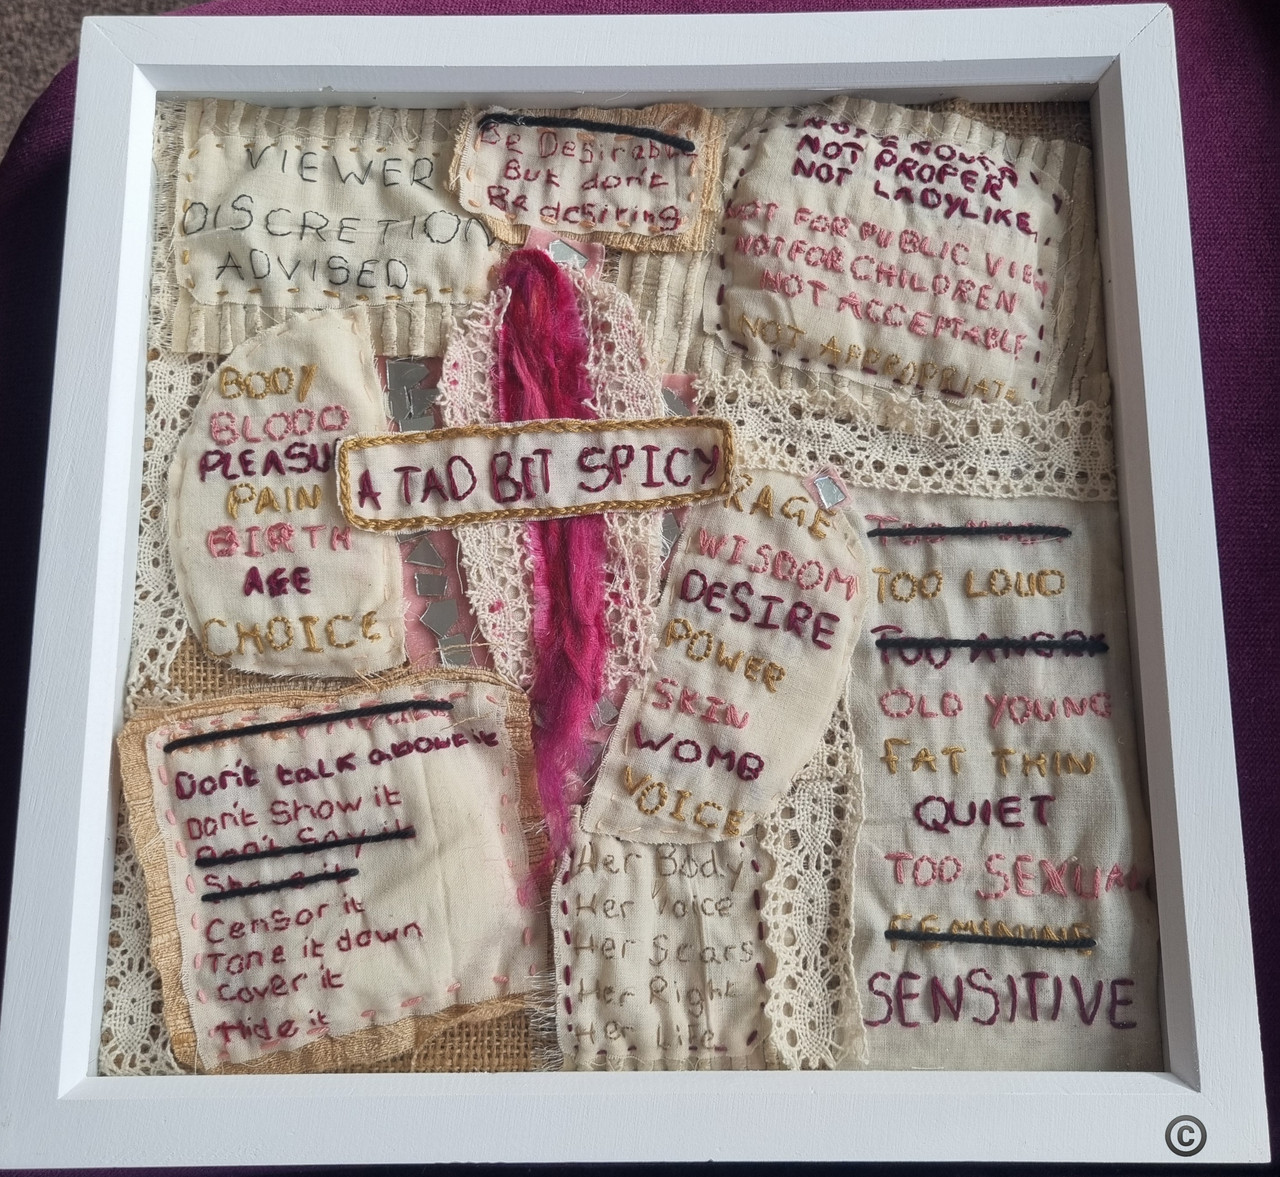 VIEWER
DISCRETION
ADVISED
Be Desirable
But don't
Be desiring
NOT
NOT PROPER
NOT LADYLIKE
NOT FOR PUBLIC VIE
NOT FOR CHILDREN
NOT ACCEPTABLE
NOT APPROPRIATE
BODY
BLOOD
PLEASU
PAIN
BIRTH
AGE
CHOICE
A TAD BIT SPICY
RAGE
WISDOM
DESIRE
POWER
SKIN
WOMB
VOICE
TOO
TOO LOUD
TOO ANGRY
OLD YOUNG
FAT THIN
QUIET
TOO SEXUAL
FEMININE
SENSITIVE
Don't talk about it
Don't Show it
Don't Say it
Shave it
Censor it
Tone it down
Cover it
Hide it
Her Body
Her Voice
Her Scars
Her Right
Her Life
©